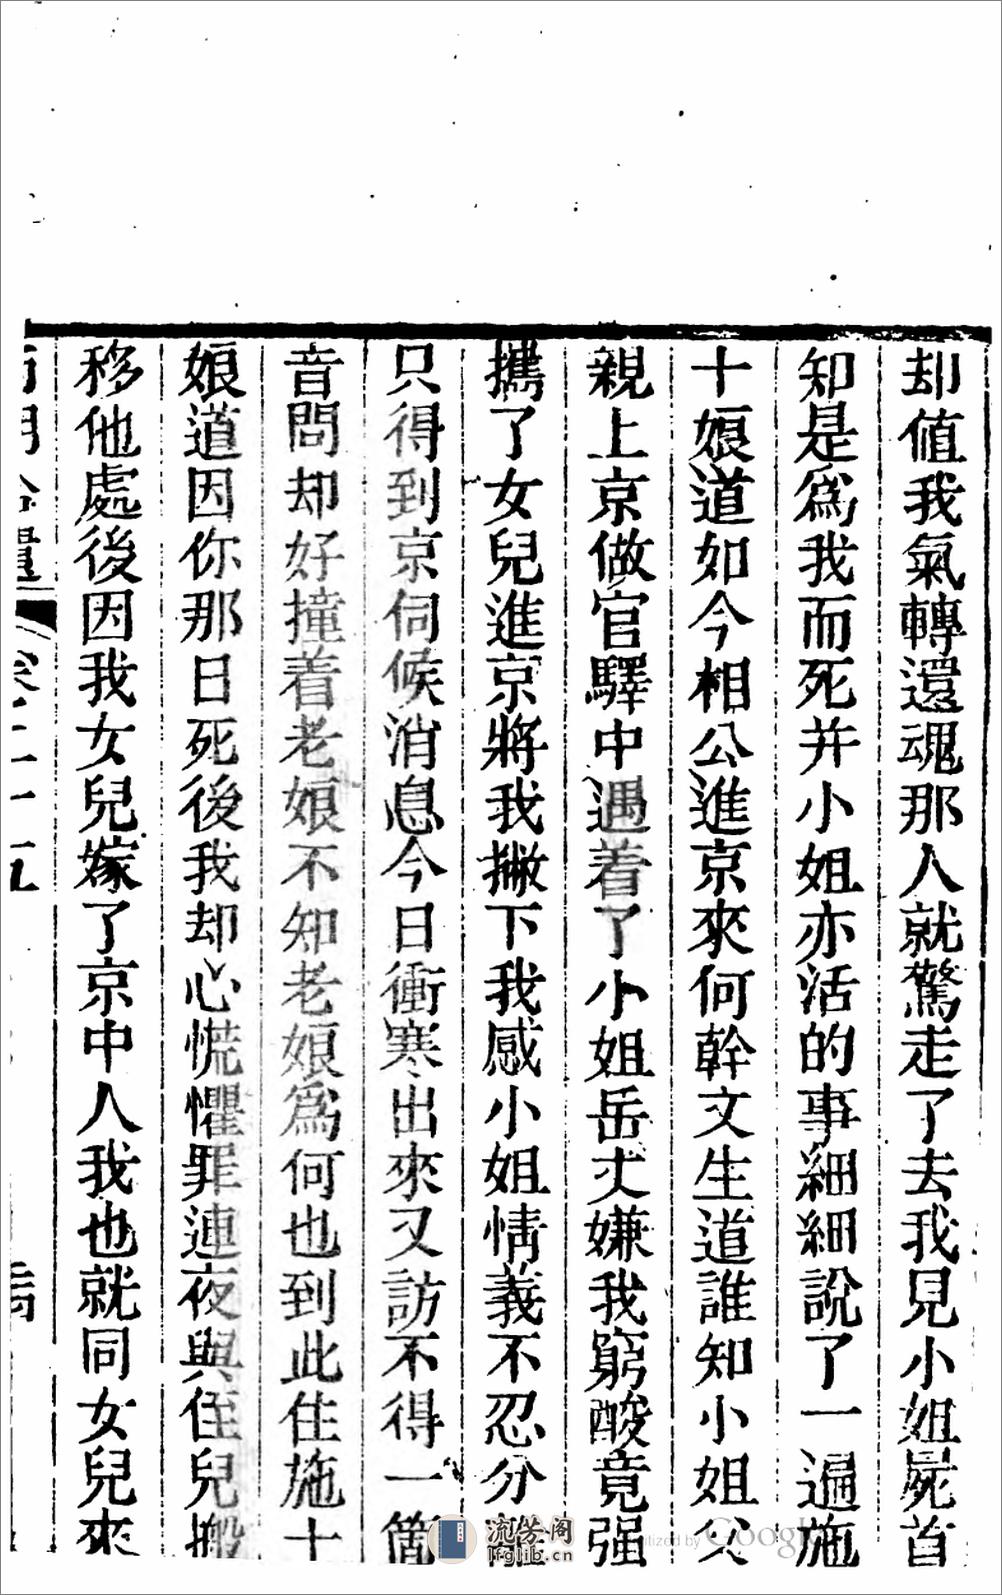 却值我氣轉還魂那人就驚走了去我見小姐屍首
知是爲我而死并小姐亦活的事細細說了一遍施
十娘道如今相公進京來何幹文生道誰知小姐父
親上京做官驛中遇着了小姐岳丈嫌我窮酸竟强
攜了女兒進京將我撇下我感小姐情義不忍分離
只得到京伺候消息今日衝寒出來又訪不得一箇
音問却好撞着老娘不知老娘爲何也到此住施十
娘道因你那日死後我却心慌懼罪連夜與侄兒搬
移他處後因我女兒嫁了京中人我也就同女兒來
流芳阁
lfglib.cn
Digitized by Google